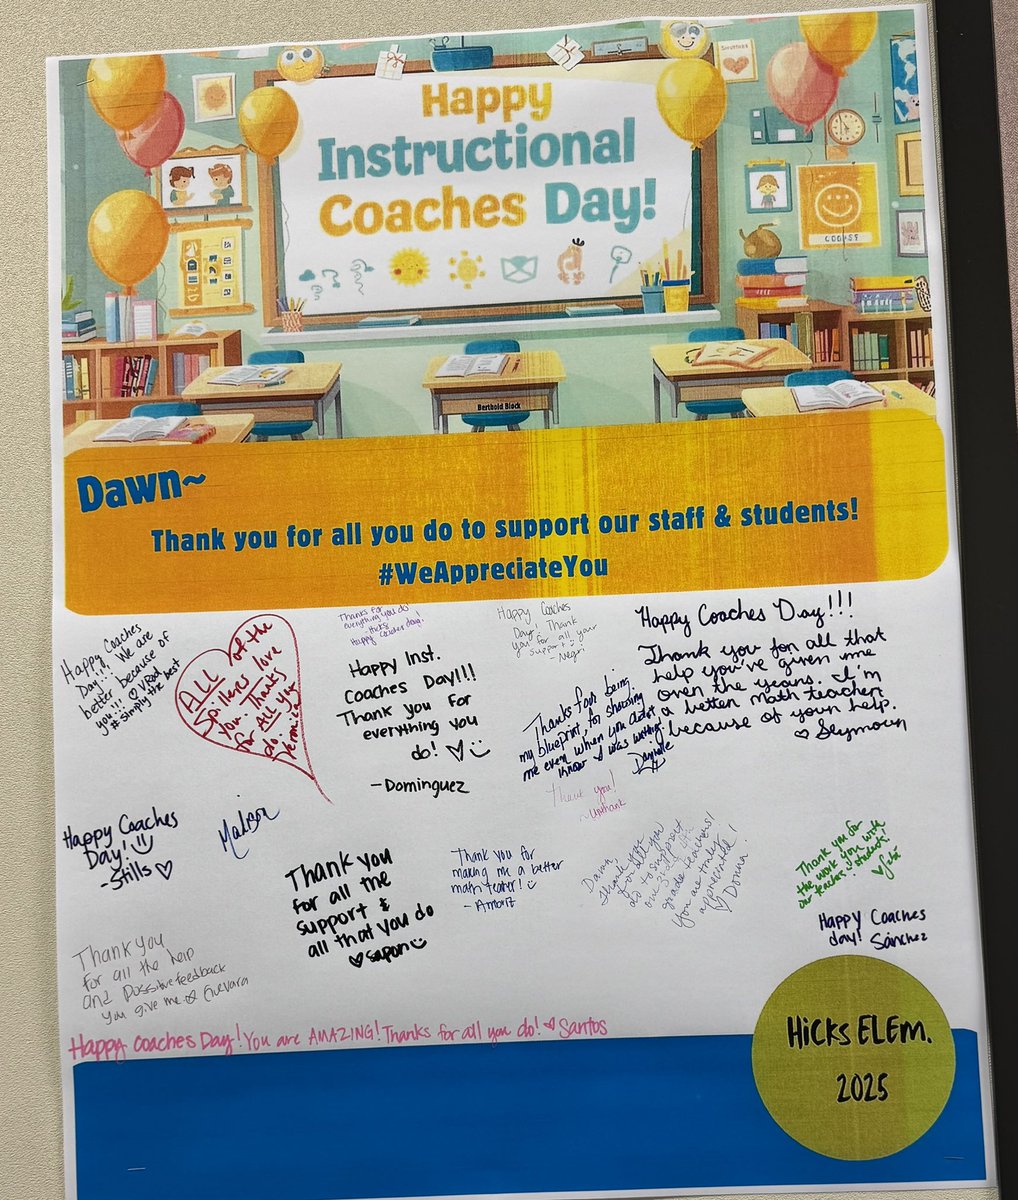 Happy
Instructional
Coaches Day!
Berthold Block
Dawn~
Thank you for all you do to support our staff & students!
#WeAppreciateYou
Happy Coaches
Day!!! We are
better because of
you!!! ♡ VRod
#simply the best
ALL of the
Spillers love
you. Thanks
for All you
do.
Thanks for
everything you do!
-Hicks
Happy Coaches day!
Happy Inst.
Coaches Day!!!
Thank you For
everything you
do! ♡ :)
-Dominguez
Happy Coaches
Day! Thank
you for all your
support :)
- Negri
Happy Coaches Day!!!
Thank you for all that
help you've given me
over the years. I'm
a better math teacher
because of your help.
♡ Seymour
Thanks for being
my blueprint, for showing
me even when you didn't
know I was watching.
Danielle
Thank you!
~Unthank
Happy Coaches
Day! :)
-Stills ♡
Madison
Thank you
for all the
support &
all that you do
♡ sapon :)
Thank you for
making me a better
math teacher! :)
- Amort
Dawn,
Thank you
for all you
do to support
our
grade teachers!
You are truly
appreciated!
♡ Donna
Thank you for
the work you do with
our teachers & students!
Happy Coaches
day! Sánchez
Thank you
for all the help
and possitive feedback
you give me. Guevara
Happy Coaches Day! You are AMAZING! Thanks for all you do! ♡ Santos
Hicks ELEm.
2025